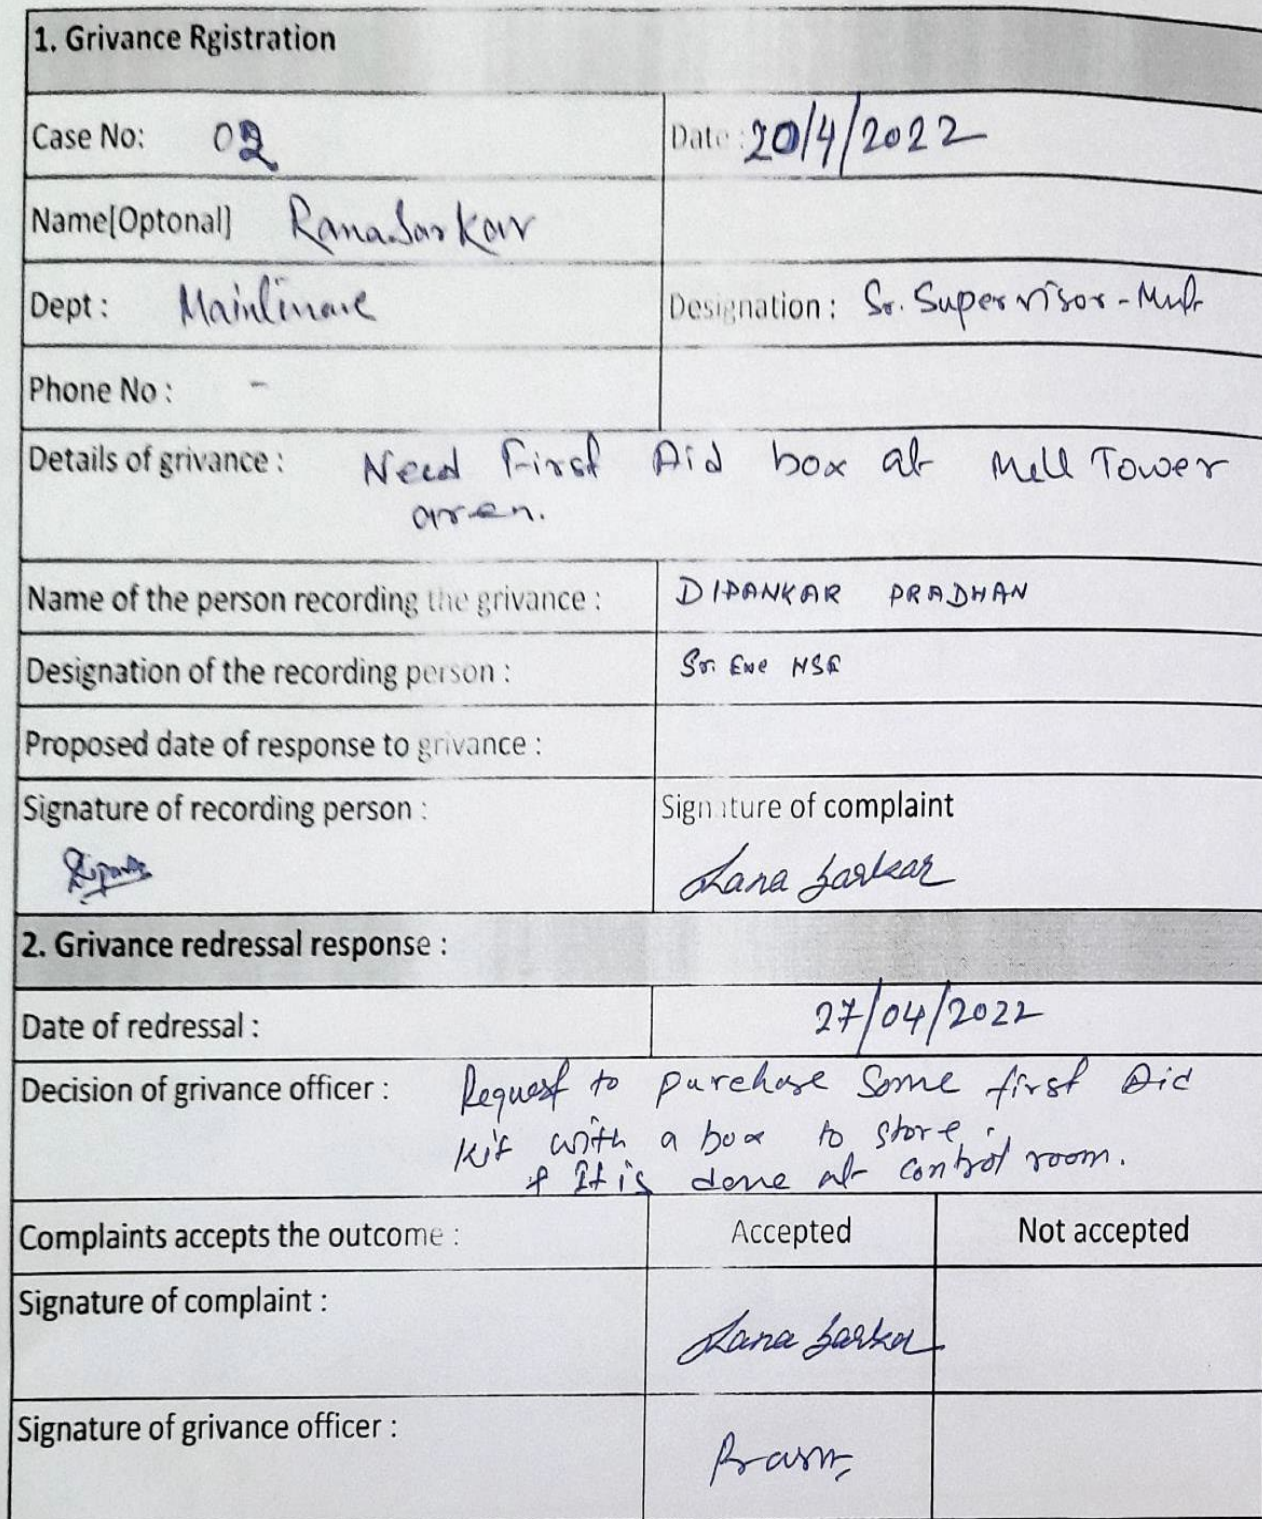 1. Grivance Rgistration
Case No: 02
Date : 20/4/2022
Name[Optonal] Rana Sarkar
Dept :
Designation : Sr. Supervisor -
Phone No : -
Details of grivance : Need First Aid box at Mill Tower
area.
Name of the person recording the grivance : DIPANKAR PRADHAN
Designation of the recording person : Sr. Exe HSE
Proposed date of response to grivance :
Signature of recording person :
Signature of complaint
Rana Sarkar
2. Grivance redressal response :
Date of redressal : 27/04/2022
Decision of grivance officer : Request to purchase Some first Aid
kit with a box to store.
& It is done at control room.
Complaints accepts the outcome : Accepted Not accepted
Signature of complaint :
Rana Sarkar
Signature of grivance officer :